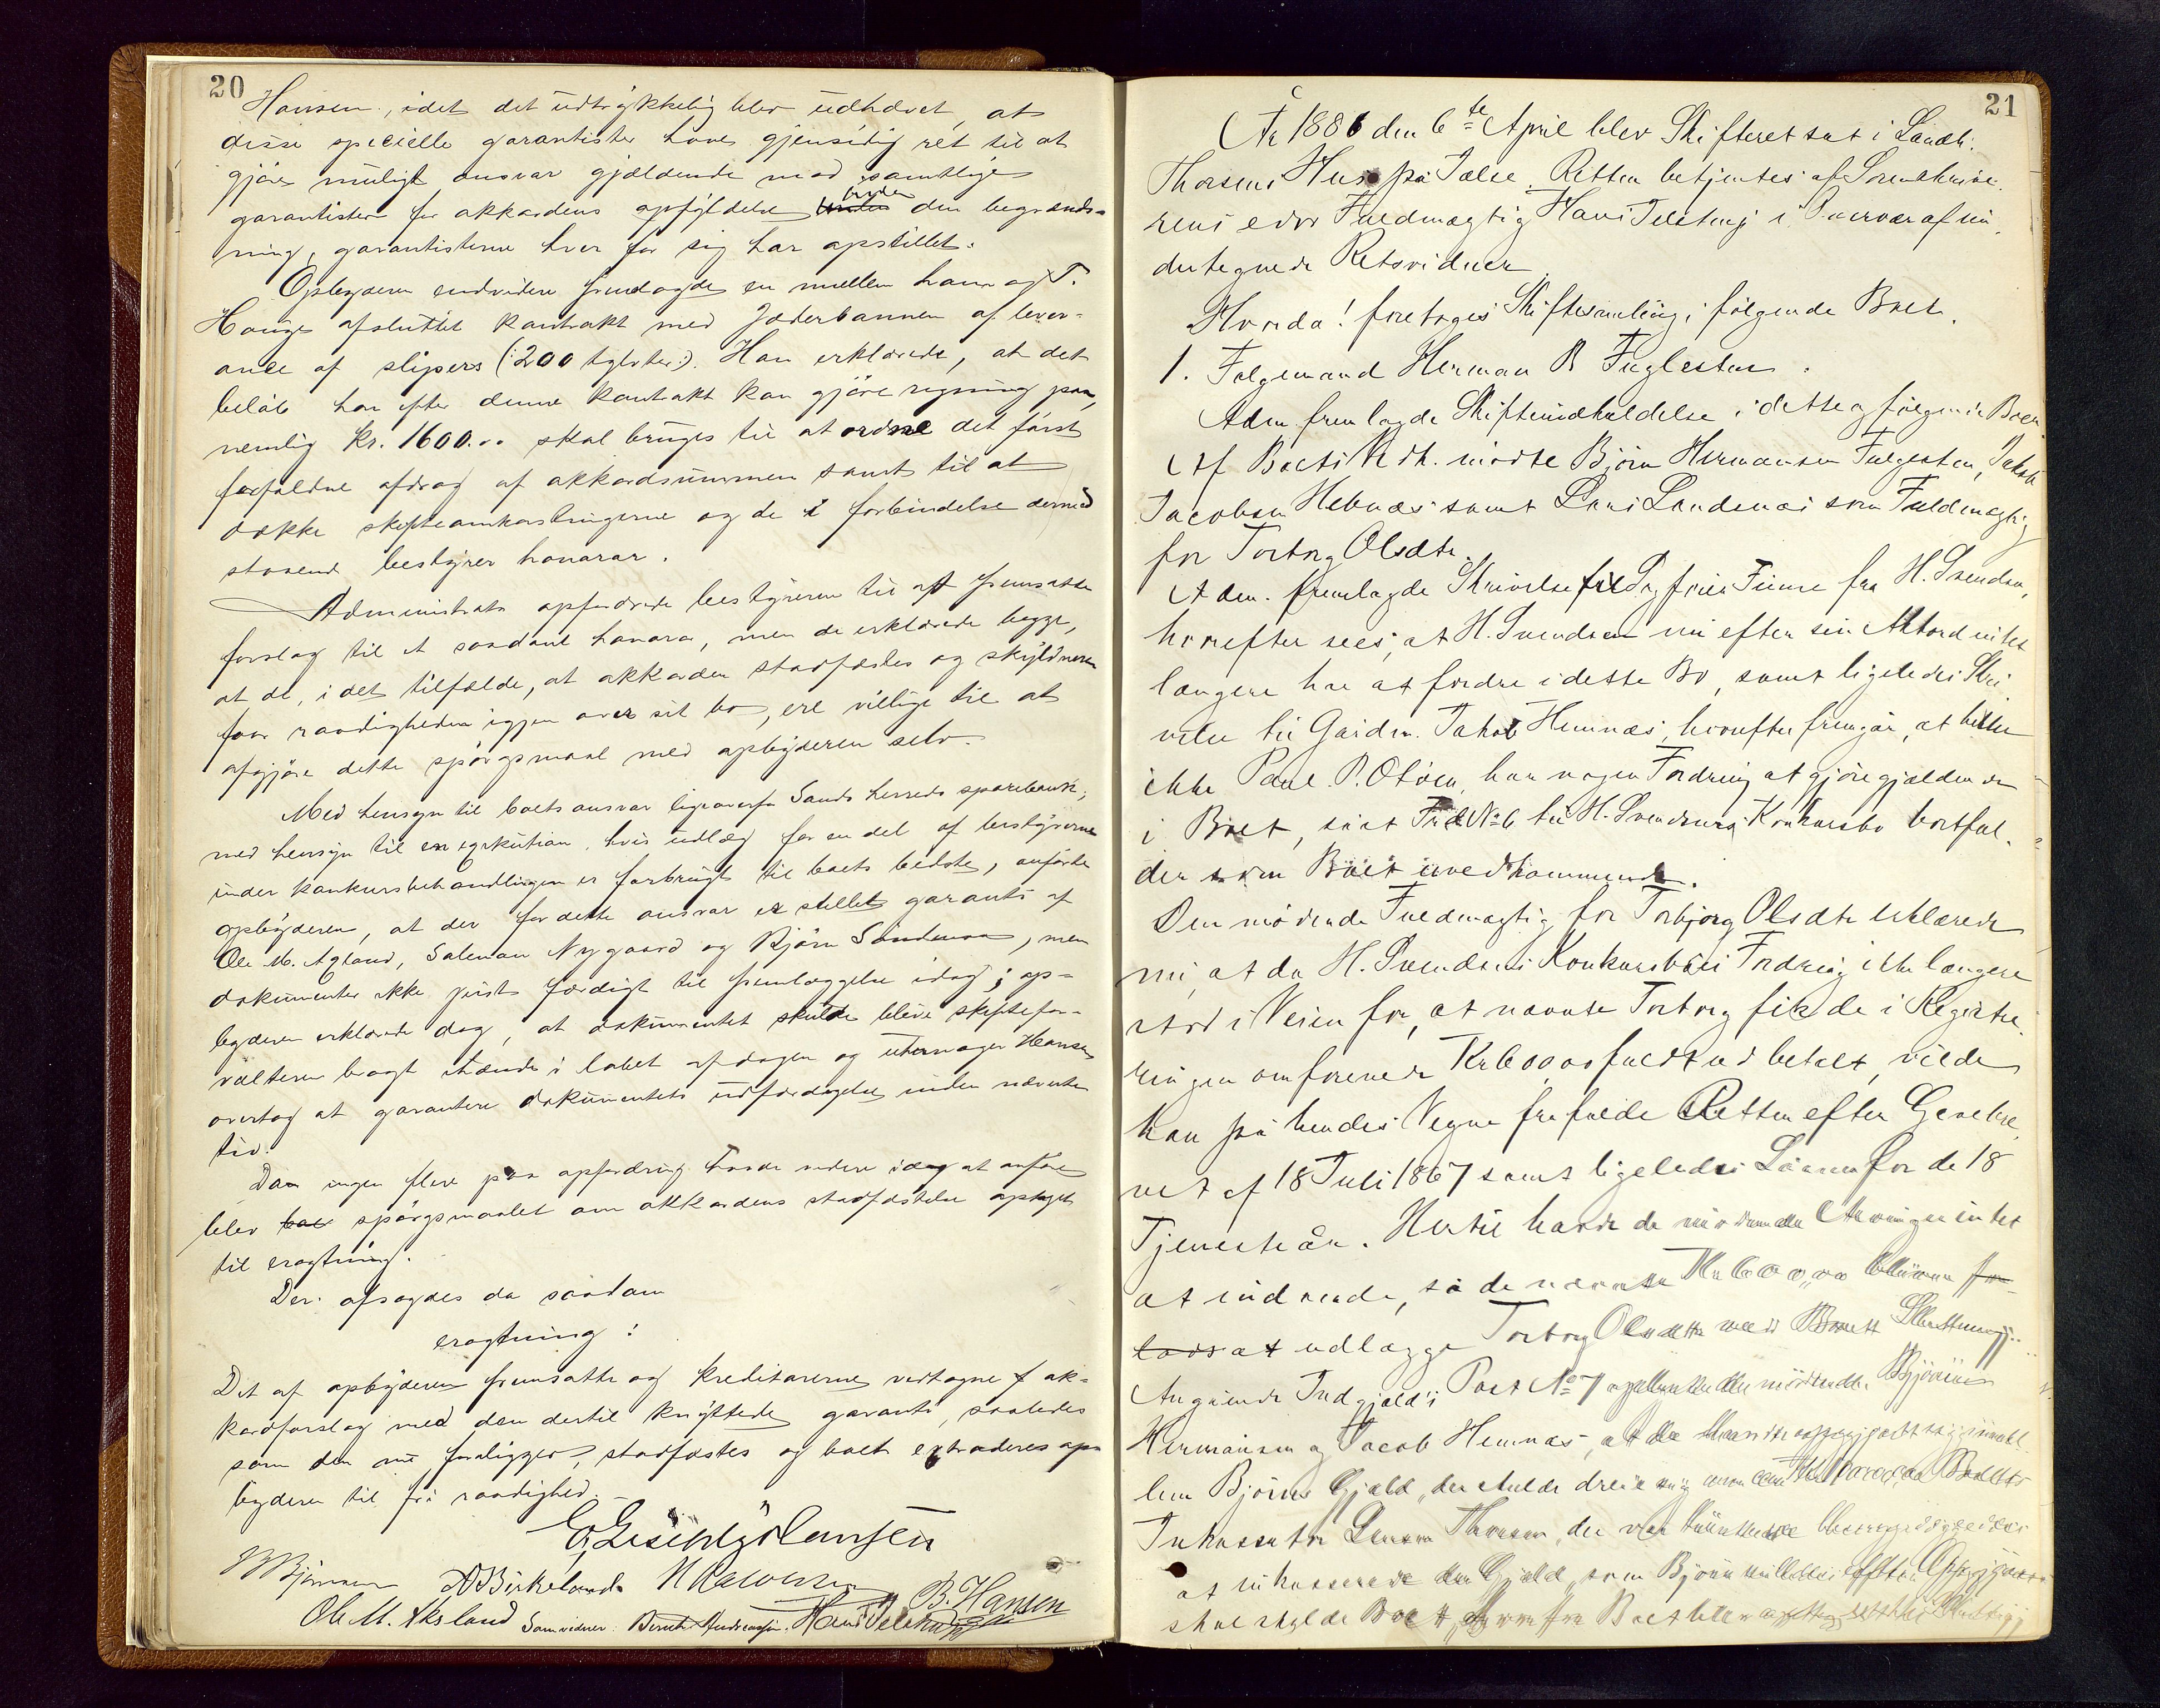 20
Hansen, idet det udtrykkelig blev udhævet, at
disse specielle garantister have gjensidig ret til at
gjøre muligt ansvar gjældende mod samtlige
garantister for akkordens opfyldelse inden den begrænds-
ning, garantisterne hver for sig har opstillet.
Opbyderen endvidere fremlagde en mellem ham og T.
Hauge afsluttet kontrakt med Jæderbannen af lever-
ance af slipers (:200 tylvter:). Han erklærede, at det
beløb han efter denne kontrakt kan gjøre regning paa,
nemlig kr. 1600.00 skal bruges til at ordne det først
forfaldne afdrag af akkordsummen samt til at
dække skifteomkostningerne og de i forbindelse dermed
staaende bestyrer honorar.
Administrator opfordrede bestyreren til at fremsætte
forslag til et saadant honorar, men de erklærede begge,
at de, i det tilfælde, at akkorden stadfæstes og skyldneren
faar raadigheden igjen over sit bo, ere villige til at
afgjøre dette spørgsmaal med opbyderen selv.
Med hensyn til boets ansvar ligeoverfor Sands herreds sparebank,
med hensyn til en exekution, hvis udlæg for en del af bestyrerne
under konkursbehandlingen er forbrugt til boets bedste, anførte
opbyderen, at der for dette ansvar er stillet garanti af
Ole M. Axland, Salomon Nygaard og Bjørn Sandemoen, men
dokumenter ikke just færdigt til fremlæggelse idag; op-
byderen erklærede dog, at dokumentet skulde blive skiftefor-
valteren bragt ihænde i løbet af dagen og Hansen
overtog at garantere dokumentets udfærdigelse inden nævnte
tid.
Da ingen flere paa opfordring havde videre idag at anføre
blev spørgsmaalet om akkordens stadfæstelse optaget
til eragtning.
Der afsagdes da saadan
eragtning:
Det af opbyderen fremsatte og kreditorerne vedtagne ak-
kordforslag med den dertil knyttede garanti, saaledes
som den nu foreligger, stadfæstes og boet extraderes op-
byderen til fri raadighed.
Hansen
Bjørnsen A Birkeland H Halvorsen B. Hansen
Ole M. Aksland Som vidner: Bernt Andreassen. Hans Telstrup
21
År 1886 den 6te April blev Skifteret sat i Landh.
Thorsens Hus på Jælse. Retten betjentes af Sorenskrive-
rens edsv. Fuldmægtig Hans Telstrup i Overvær af un-
dertegnede Retsvidner
Hvorda! foretoges Skiftesamling i følgende Boer.
1. Folgemand Herman B Fuglestein.
Adm. fremlagde Skifteindkaldelse i dette og følgende Boer
Af Boets Vedk. mødte Bjørn Hermansen Fuglestein, Jakob
Jacobsen Hebnæs samt Lars Landsnæs som Fuldmægtig
for Torborg Olsdtr.
Adm. fremlagde Skrivelse fra Sagfører Finne fra H. Svendsen,
hvorefter sees, at H. Svendsen nu efter sin Akkord intet
længere har at fordre i dette Bo, samt ligeledes Skri-
velse til Gårdm. Jakob Hemnæs, hvorefter fremgår, at heller
ikke Paul P. Otøen har nogen Fordring at gjøre gjældende
i Boet, såat No 6 til H. Svendsens Konkursbo bortfal-
der som Boet uvedkommende.
Den mødende Fuldmægtig for Torbjørg Olsdtr erklærede
nu, at da H. Svendsens Konkursboes Fordring ikke længere
stod i Veien for, at nævnte Torborg fik de i Registre-
ringen omforenede Kr 600 00 fuldt ud betalt, vilde
han på hendes Vegne frafalde Retten efter Gavebre-
vet af 18 Juli 1867 samt ligeledes Lønnen for de 18
Tjenesteår. Hertil havde de mødende Arvinger intet
at indvende, så de nævnte Kr 600,00 bliver
at udlægge Torborg Olsdtr ved Boets Slutning.
Angående Indgjælds Post No 7 mødende Bjørn
Hermansen og Jacob Hemnæs, at de
lem Bjørns Gjæld, der skulde dreie sig om
Inkassator Thorsen, der var
at inkassere den Gjæld, som Bjørn
skal skylde Boet,